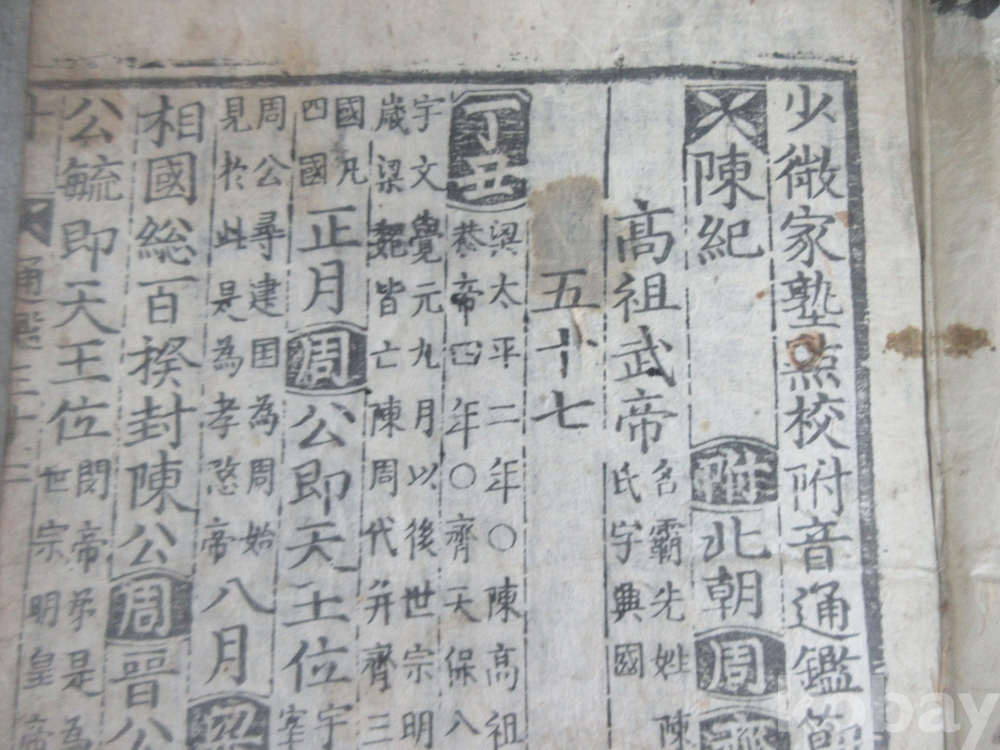 少微家塾點校附音通鑑節
陳紀 附 北朝 周 齊
高祖武帝 名霸先姓陳
氏字興國
五十七
丁丑 梁太平二年○陳高祖
恭帝四年○齊天保八
宇文覺元九月以後世宗明
歲梁魏皆亡陳周代并齊三
國凡
四國
正月周公即天王位 宇
宰
周公尋建国為周始
見於此是為孝愍帝
八月梁
相國総百揆封陳公周晉公
公毓即天王位 閔帝弟是為
世宗明皇帝
通鑑三十
kobay